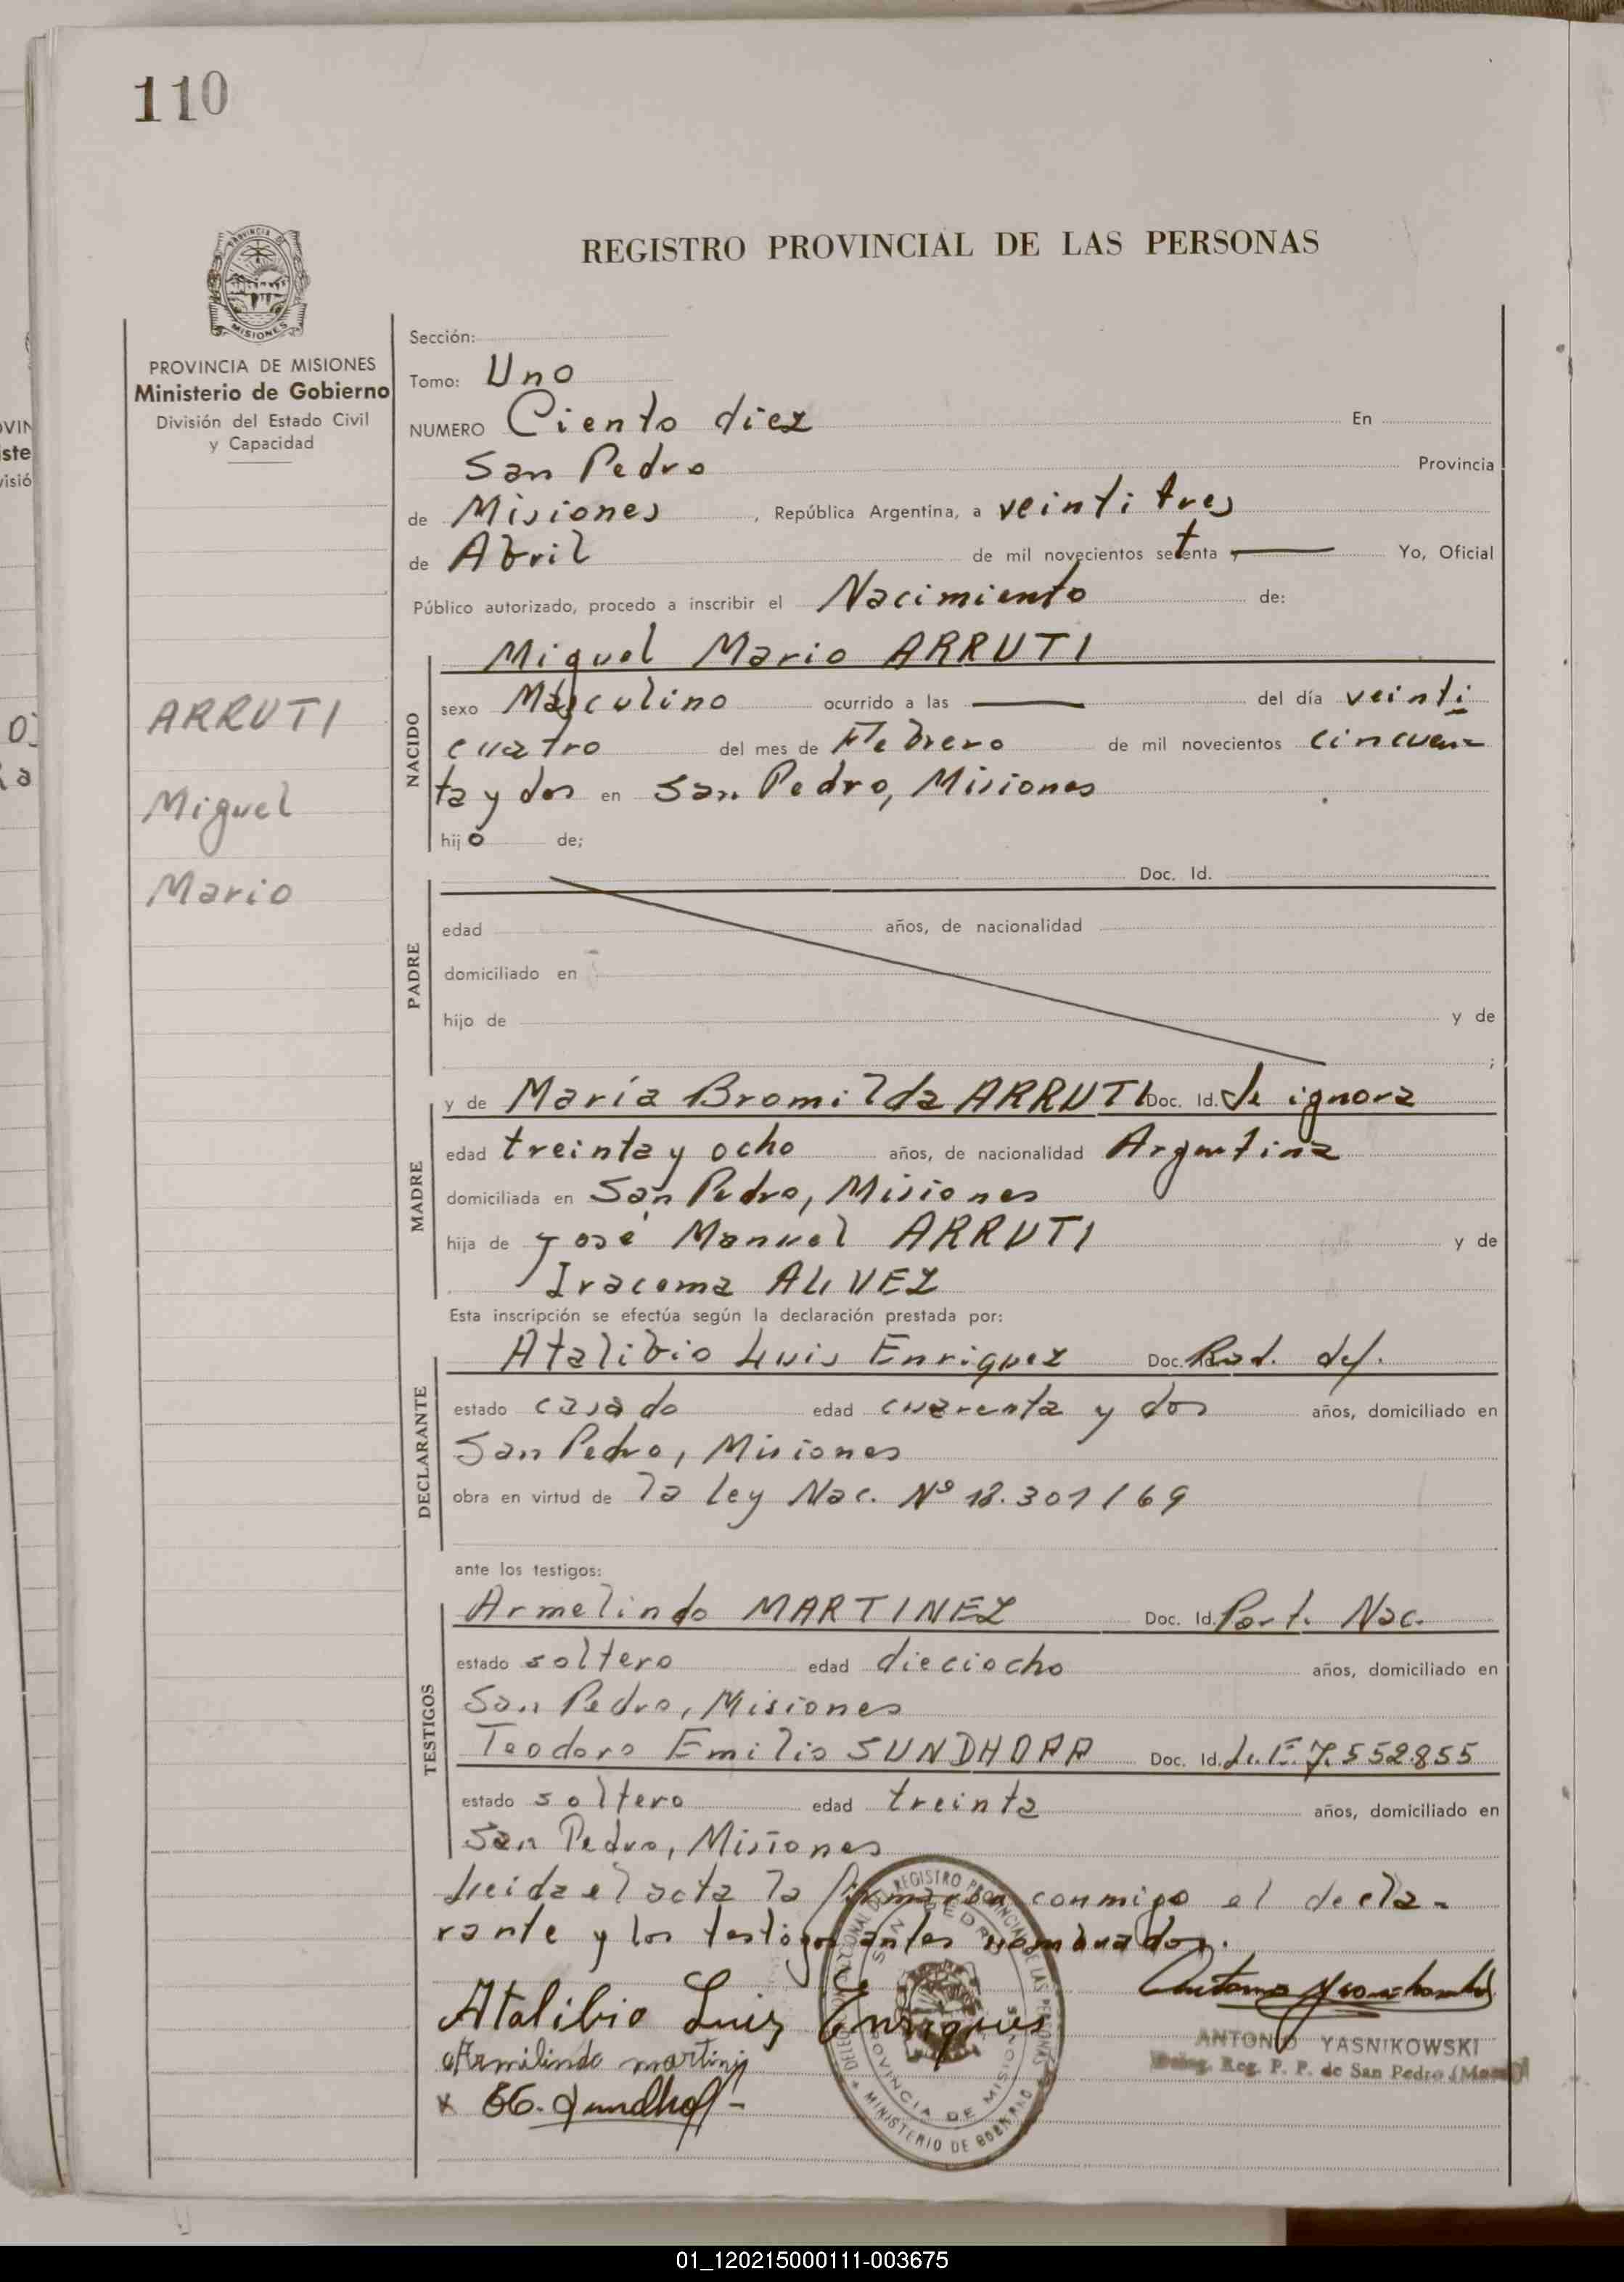 110
REGISTRO PROVINCIAL DE LAS PERSONAS
PROVINCIA DE
MISIONES
PROVINCIA DE MISIONES
Ministerio de Gobierno
División del Estado Civil
y Capacidad
ARRUTI
Miguel
Mario
Sección:
Tomo: Uno
NUMERO Ciento diez En
San Pedro Provincia
de Misiones, República Argentina, a veintitres
de Abril de mil novecientos setenta, — Yo, Oficial
Público autorizado, procedo a inscribir el Nacimiento de:
NACIDO
Miguel Mario ARRUTI
sexo Masculino ocurrido a las — del día veinti
cuatro del mes de Febrero de mil novecientos cincuen-
ta y dos en San Pedro, Misiones
hijo de;
PADRE
Doc. Id.
edad años, de nacionalidad
domiciliado en
hijo de y de
;
MADRE
y de María Bromilda ARRUTI Doc. Id. se ignora
edad treinta y ocho años, de nacionalidad Argentina
domiciliada en San Pedro, Misiones
hija de José Manuel ARRUTI y de
Iracema ALVEZ
Esta inscripción se efectúa según la declaración prestada por:
DECLARANTE
Atalibio Luis Enriquez Doc. Rad. def.
estado casado edad cuarenta y dos años, domiciliado en
San Pedro, Misiones
obra en virtud de la ley Nac. Nº 18.301/69
ante los testigos:
TESTIGOS
Armelindo MARTINEZ Doc. Id. Part. Nac.
estado soltero edad dieciocho años, domiciliado en
San Pedro, Misiones
Teodoro Emilio SUNDHOFF Doc. Id. L.E. 7.552.855
estado soltero edad treinta años, domiciliado en
San Pedro, Misiones
Leida el acta la firmaron conmigo el decla-
rante y los testigos antes nombrados.
Atalibio Luiz Enriques
Armilindo martinz
x
DELEGACION SECCIONAL DEL REGISTRO PROVINCIAL DE LAS PERSONAS
SAN PEDRO
PROVINCIA DE MISIONES
MINISTERIO DE GOBIERNO
ANTONIO YASNIKOWSKI
Deleg. Reg. P. P. de San Pedro (Mnes)
01_120215000111-003675